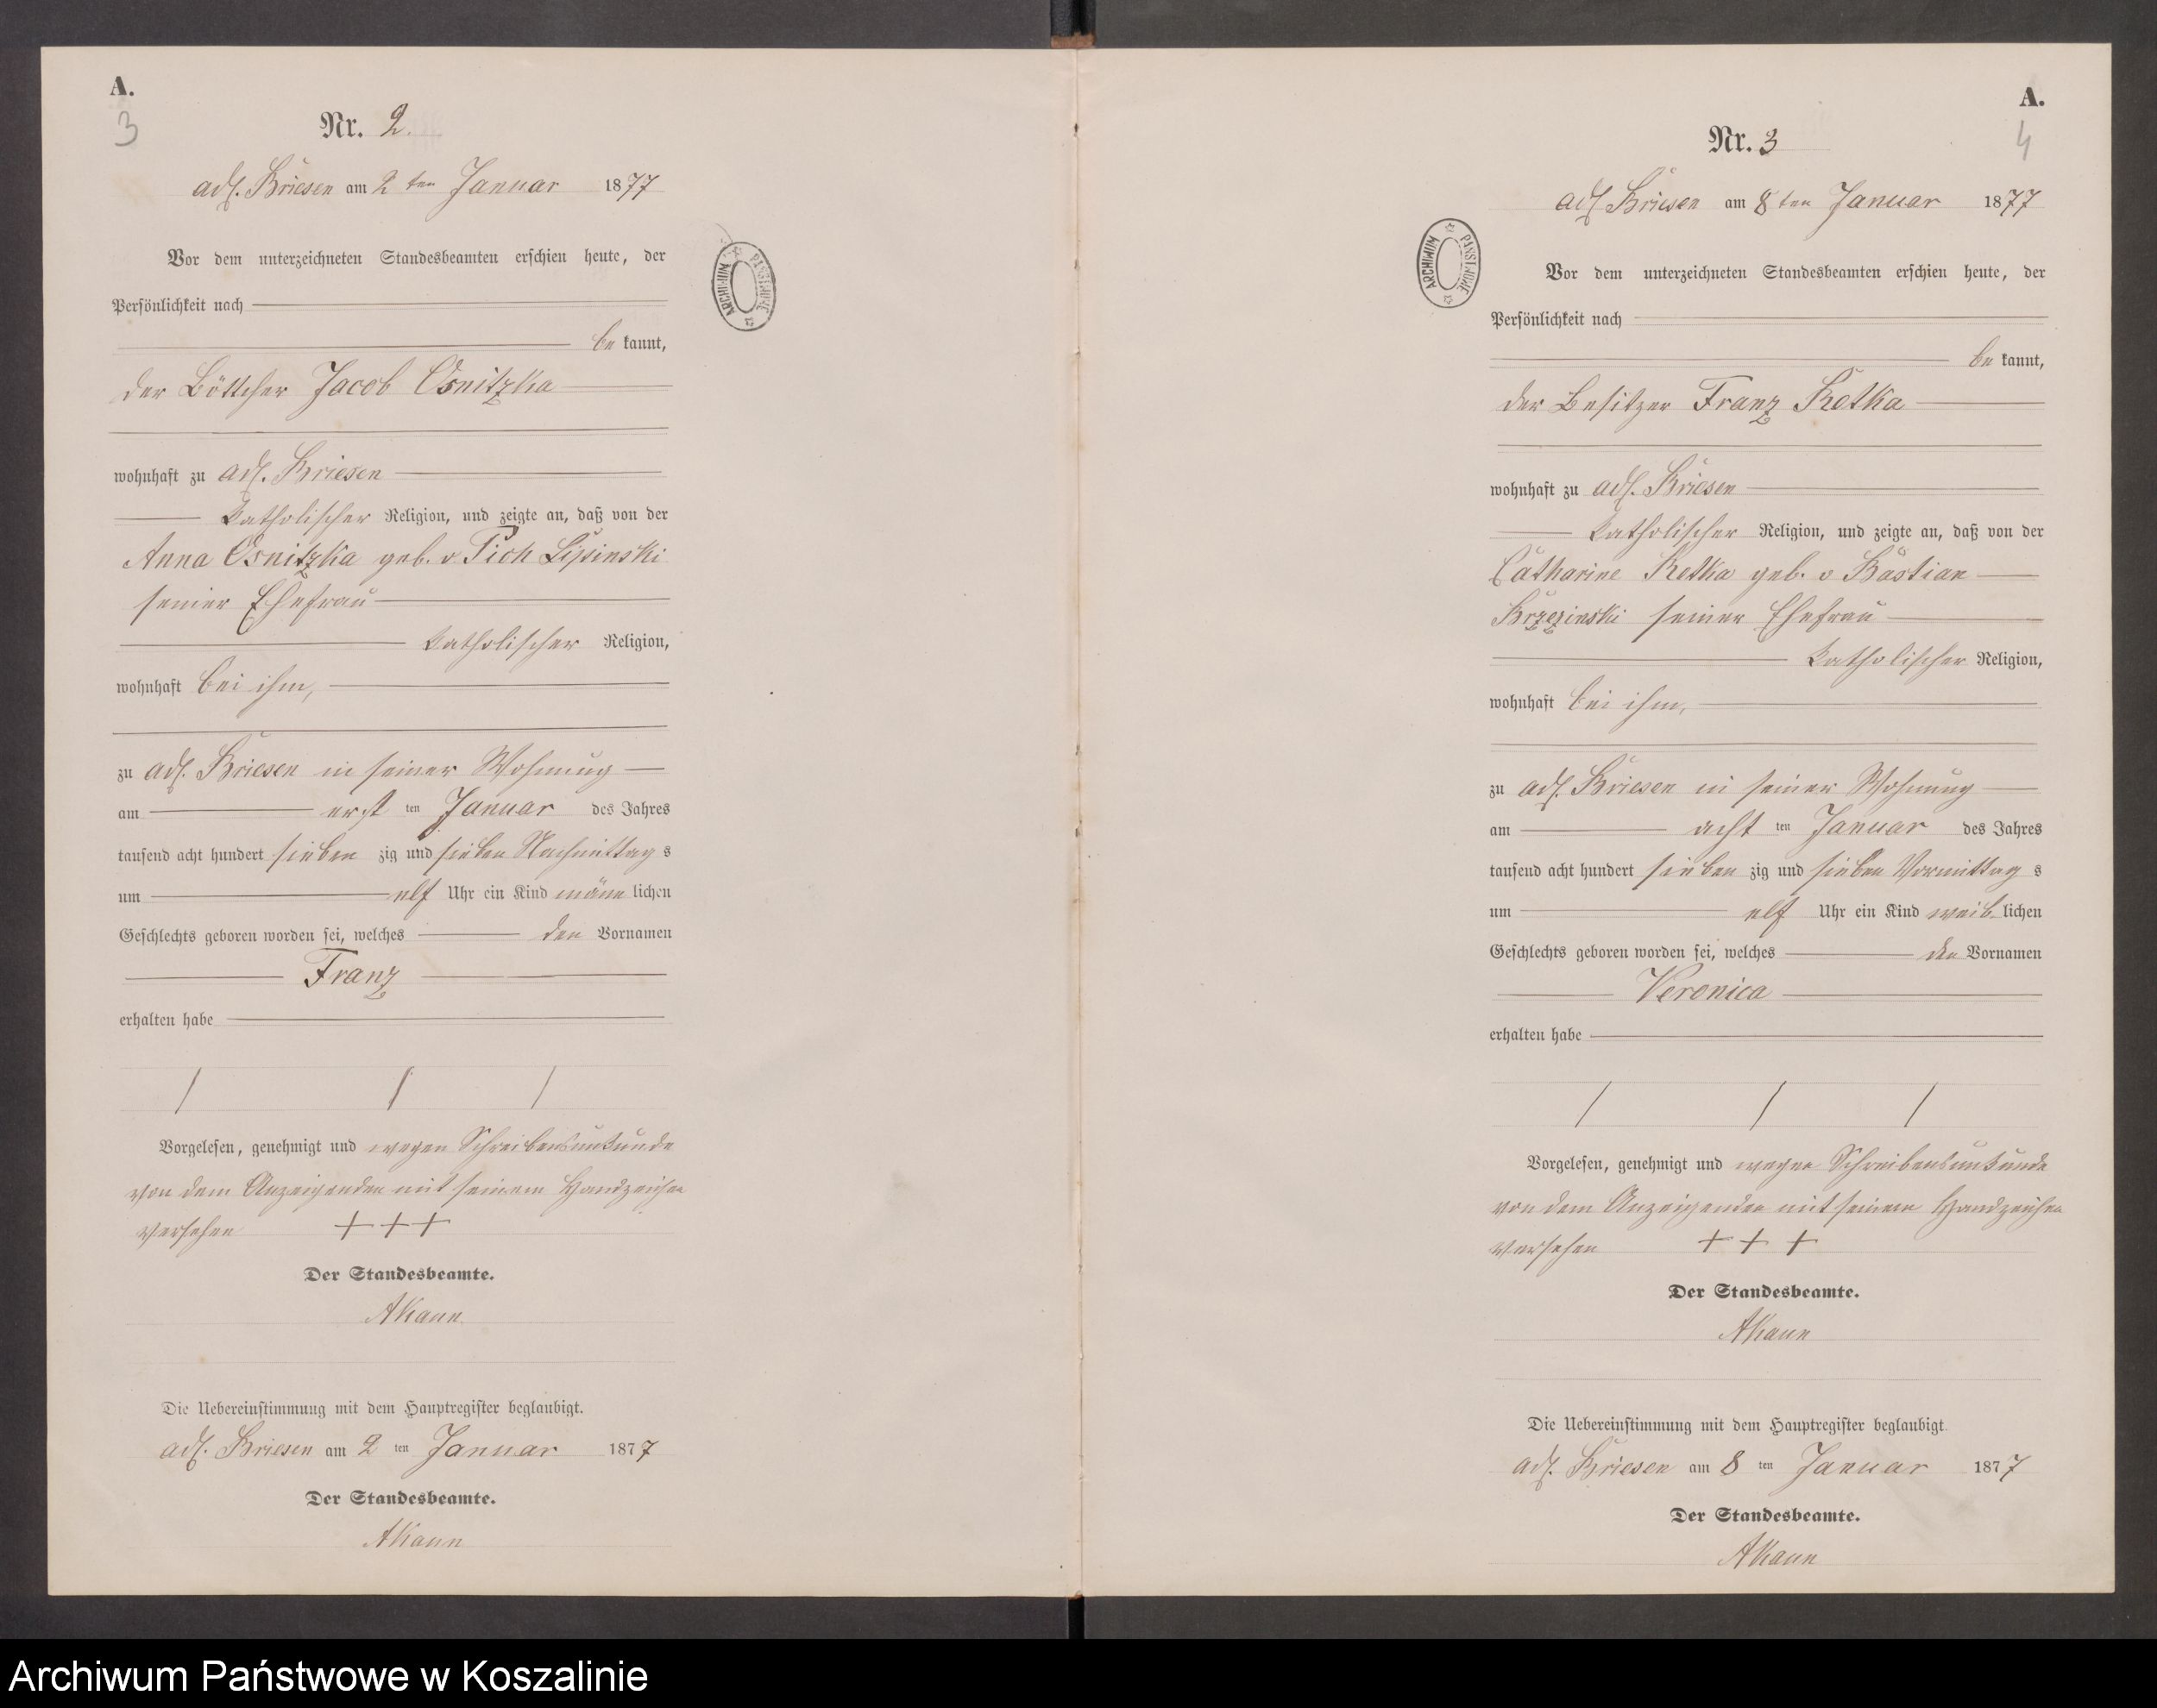 A.
3
Nr. 2.
adl. Briesen am 2 ten Januar 1877
Vor dem unterzeichneten Standesbeamten erschien heute, der
Persönlichkeit nach
be kannt,
der Böttcher Jacob Osnitzka
wohnhaft zu adl. Briesen
katholischer Religion, und zeigte an, daß von der
Anna Osnitzka geb. v Pich Lipinski
seiner Ehefrau
katholischer Religion,
wohnhaft bei ihm,
zu adl. Briesen in seiner Wohnung
am erst ten Januar des Jahres
tausend acht hundert sieben zig und sieben Nachmittag s
um elf Uhr ein Kind männ lichen
Geschlechts geboren worden sei, welches den Vornamen
Franz
erhalten habe
Vorgelesen, genehmigt und wegen Schreibensunkunde
von dem Anzeigenden mit seinem Handzeichen
versehen +++
Der Standesbeamte.
AKann
Die Uebereinstimmung mit dem Hauptregister beglaubigt.
adl. Briesen am 2 ten Januar 1877
Der Standesbeamte.
AKann
ARCHIWUM PAŃSTWOWE
A.
4
Nr. 3
adl Briesen am 8 ten Januar 1877
ARCHIWUM PAŃSTWOWE
Vor dem unterzeichneten Standesbeamten erschien heute, der
Persönlichkeit nach
be kannt,
der Besitzer Franz Retka
wohnhaft zu adl. Briesen
katholischer Religion, und zeigte an, daß von der
Catharine Retka geb. v Bastian
Brzezinski seiner Ehefrau
katholischer Religion,
wohnhaft bei ihm,
zu adl. Briesen in seiner Wohnung
am acht ten Januar des Jahres
tausend acht hundert sieben zig und sieben Vormittag s
um elf Uhr ein Kind weib lichen
Geschlechts geboren worden sei, welches den Vornamen
Veronica
erhalten habe
Vorgelesen, genehmigt und wegen Schreibensunkunde
von dem Anzeigenden mit seinem Handzeichen
versehen + + +
Der Standesbeamte.
AKann
Die Uebereinstimmung mit dem Hauptregister beglaubigt.
adl. Briesen am 8 ten Januar 1877
Der Standesbeamte.
AKann
Archiwum Państwowe w Koszalinie